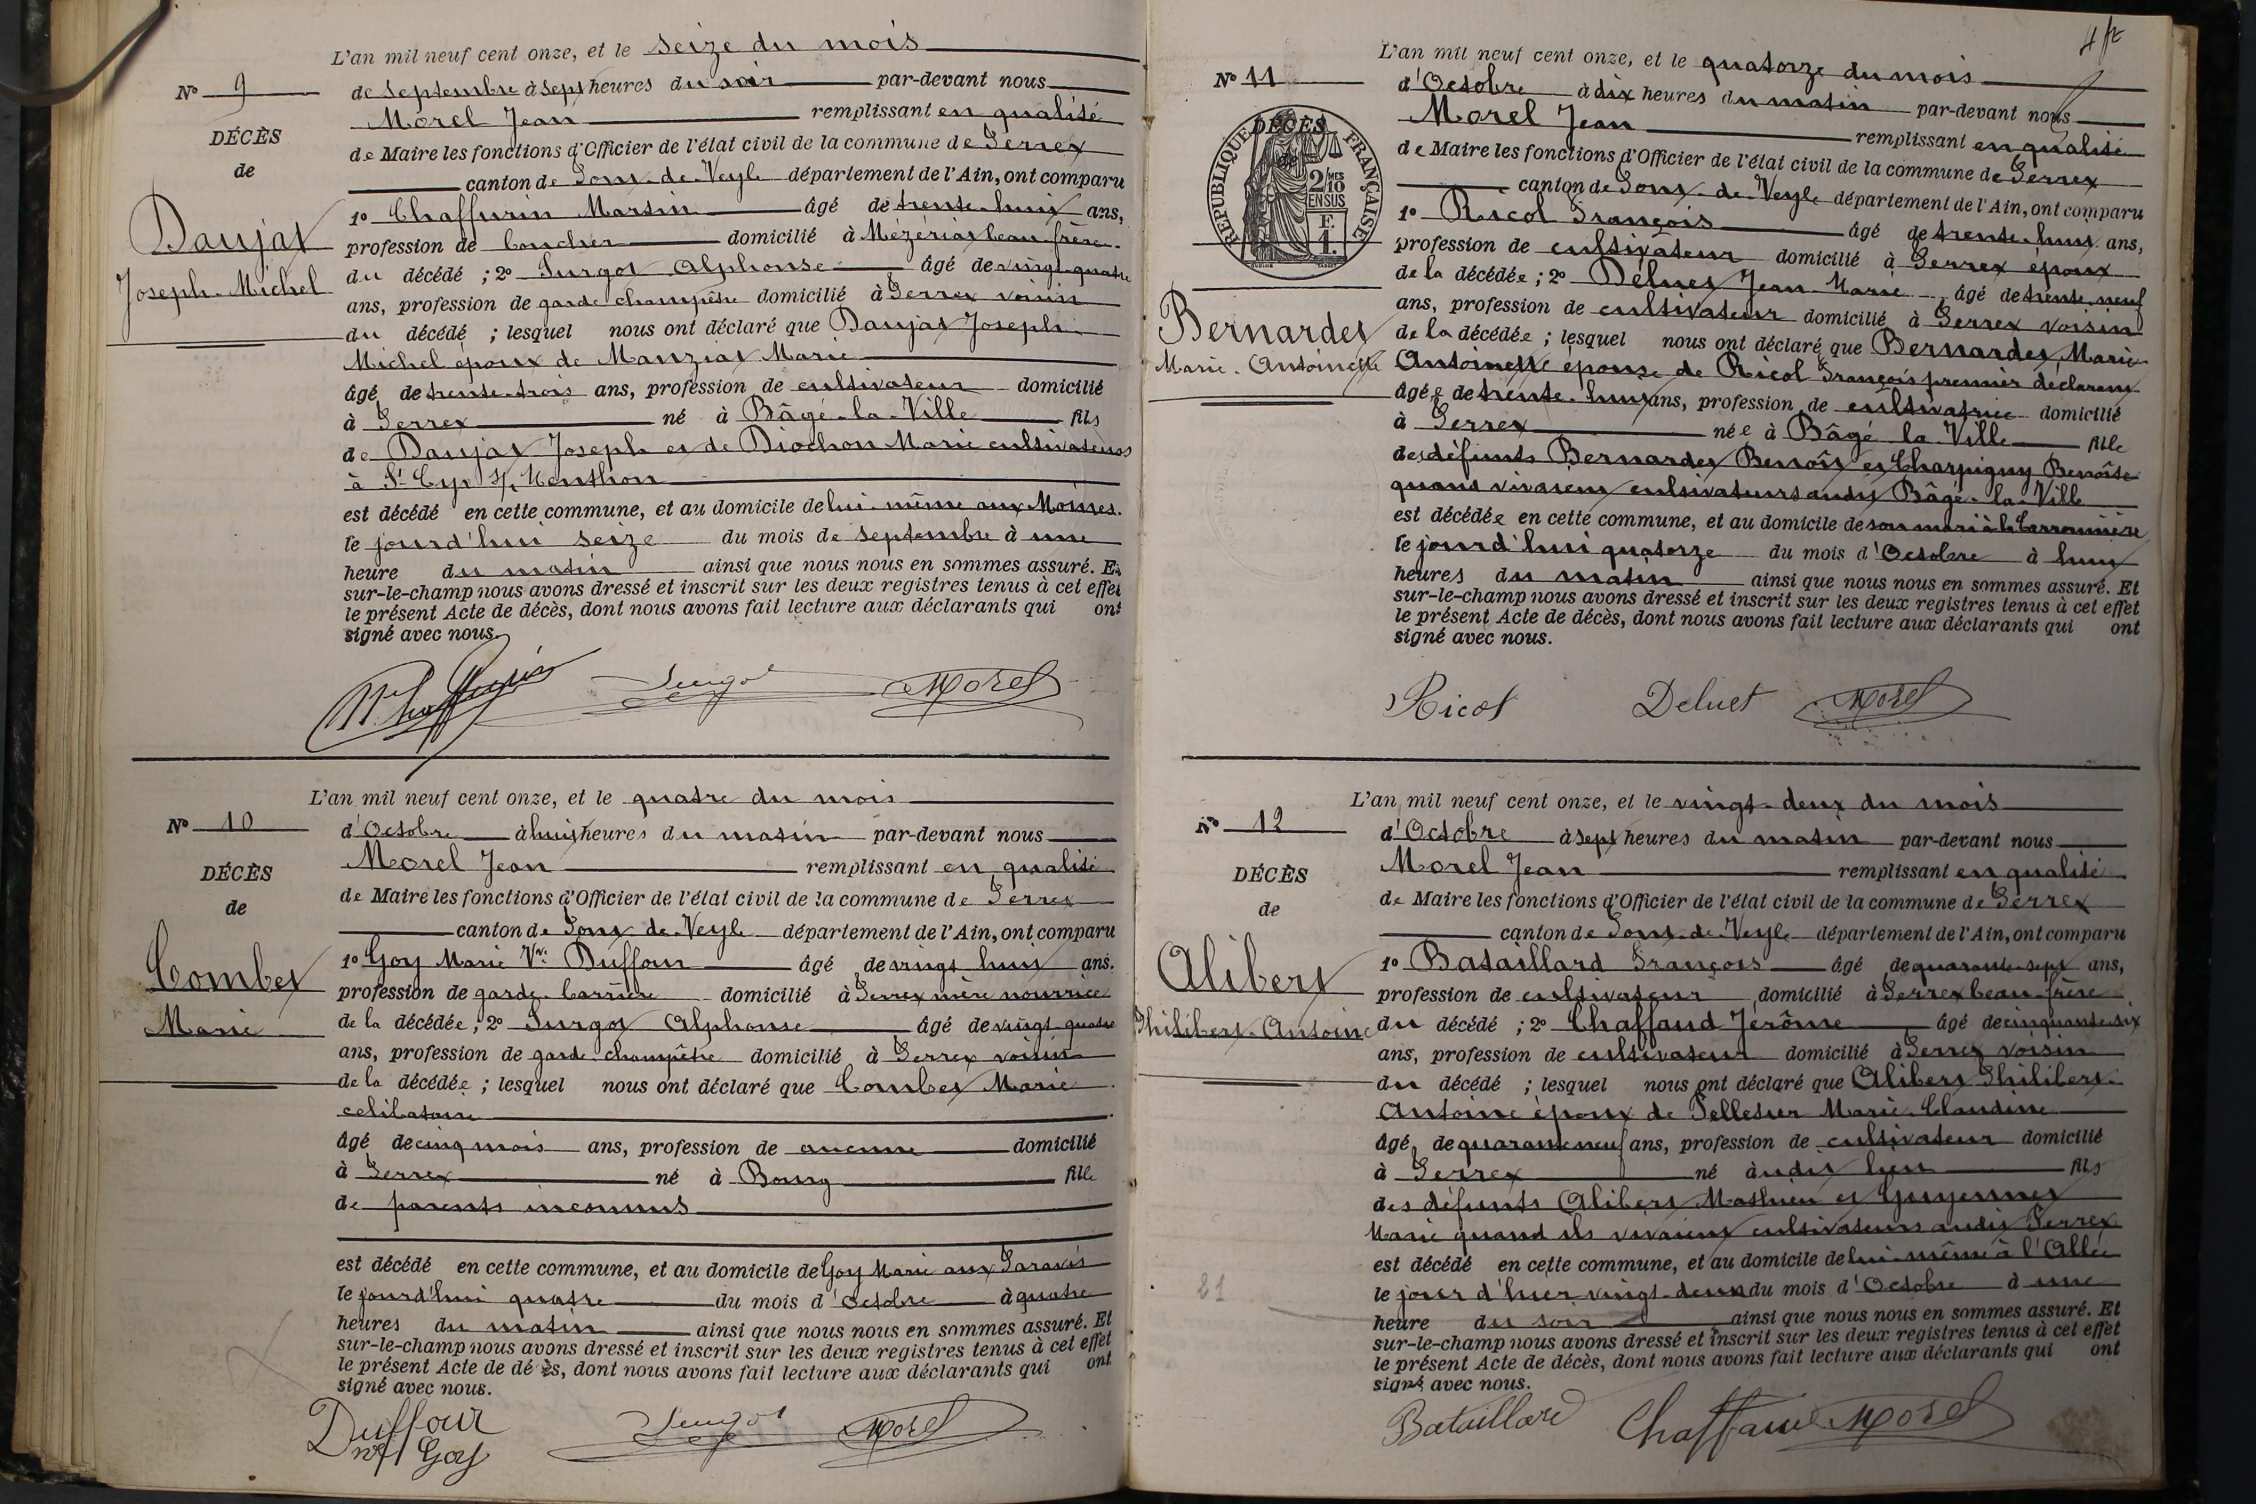 L'an mil neuf cent onze, et le seize du mois
No 9
de septembre à sept heures du soir par-devant nous
Morel Jean remplissant en qualité
DÉCÈS
de Maire les fonctions d'Officier de l'état civil de la commune de Perrex
de
canton de Pont-de-Veyle département de l'Ain, ont comparu
1o Chaffurin Martin âgé de trente-huit ans,
Daujat
profession de boucher domicilié à Mézériat beau-frère
Joseph-Michel
du décédé ; 2o Surgot Alphonse âgé de vingt-quatre
ans, profession de garde champêtre domicilié à Perrex voisin
du décédé ; lesquel nous ont déclaré que Daujat Joseph
Michel époux de Manziat Marie
âgé de trente-trois ans, profession de cultivateur domicilié
à Perrex né à Bâgé-la-Ville fils
de Daujat Joseph et de Diochon Marie cultivateurs
à St Cyr s/ Menthon
est décédé en cette commune, et au domicile de lui-même aux Moines
le jourd'hui seize du mois de septembre à une
heure du matin ainsi que nous nous en sommes assuré. Et
sur-le-champ nous avons dressé et inscrit sur les deux registres tenus à cet effet
le présent Acte de décès, dont nous avons fait lecture aux déclarants qui ont
signé avec nous.
Surgot Morel
L'an mil neuf cent onze, et le quatre du mois
No 10
d'Octobre à huit heures du matin par-devant nous
Morel Jean remplissant en qualité
DÉCÈS
de Maire les fonctions d'Officier de l'état civil de la commune de Perrex
de
canton de Pont-de-Veyle département de l'Ain, ont comparu
1o Goy Marie Ve Duffour âgé de vingt huit ans.
Combet
profession de garde-barrière domicilié à Perrex mère nourrice
Marie
de la décédée ; 2o Surgot Alphonse âgé de vingt-quatre
ans, profession de garde-champêtre domicilié à Perrex voisin
de la décédée ; lesquel nous ont déclaré que Combet Marie
celibataire
âgé de cinq mois ans, profession de aucune domicilié
à Perrex né à Bourg fille
de parents inconnus
est décédé en cette commune, et au domicile de Goy Marie aux
le jourd'hui quatre du mois d'Octobre à quatre
heures du matin ainsi que nous nous en sommes assuré. Et
sur-le-champ nous avons dressé et inscrit sur les deux registres tenus à cet effet
le présent Acte de décès, dont nous avons fait lecture aux déclarants qui ont
signé avec nous.
Duffour Surgot Morel
née Goy
L'an mil neuf cent onze, et le quatorze du mois
No 11
d'Octobre à dix heures du matin par-devant nous
Morel Jean remplissant en qualité
DÉCÈS
de
RÉPUBLIQUE FRANÇAISE
2/10 MES
EN SUS
F.
1.
de Maire les fonctions d'Officier de l'état civil de la commune de Perrex
canton de Pont-de-Veyle département de l'Ain, ont comparu
1o Ricol François âgé de trente-huit ans,
profession de cultivateur domicilié à Perrex époux
de la décédée ; 2o Deluet Jean Marie âgé de trente-neuf
Bernardet
ans, profession de cultivateur domicilié à Perrex voisin
Marie-Antoinette
de la décédée ; lesquel nous ont déclaré que Bernardet Marie
Antoinette épouse de Ricol François premier déclarant
âgée de trente-huit ans, profession de cultivatrice domicilié
à Perrex née à Bâgé la Ville fille
des défunts Bernardet Benoît et Charpigny Benoîte
quand vivaient cultivateurs audit Bâgé-la-Ville
est décédée en cette commune, et au domicile de son mari à la
le jourd'hui quatorze du mois d'Octobre à huit
heures du matin ainsi que nous nous en sommes assuré. Et
sur-le-champ nous avons dressé et inscrit sur les deux registres tenus à cet effet
le présent Acte de décès, dont nous avons fait lecture aux déclarants qui ont
signé avec nous.
Ricol Deluet Morel
L'an mil neuf cent onze, et le vingt-deux du mois
No 12
d'Octobre à sept heures du matin par-devant nous
Morel Jean remplissant en qualité
DÉCÈS
de Maire les fonctions d'Officier de l'état civil de la commune de Perrex
de
canton de Pont-de-Veyle département de l'Ain, ont comparu
1o Bataillard François âgé de quarante-sept ans,
Alibert
profession de cultivateur domicilié à Perrex beau-frère
Philibert-Antoine
du décédé ; 2o Chaffaud Jérôme âgé de cinquante-six
ans, profession de cultivateur domicilié à Perrex voisin
du décédé ; lesquel nous ont déclaré que Alibert Philibert
Antoine époux de Pelletier Marie-Claudine
âgé de quarante neuf ans, profession de cultivateur domicilié
à Perrex né à udit lieu fils
des défunts Alibert Mathieu et Guyennet
Marie quand ils vivaient cultivateurs audit Perrex
est décédé en cette commune, et au domicile de lui-même à l'Allée
le jour d'hier vingt-deux du mois d'Octobre à une
heure du soir ainsi que nous nous en sommes assuré. Et
sur-le-champ nous avons dressé et inscrit sur les deux registres tenus à cet effet
le présent Acte de décès, dont nous avons fait lecture aux déclarants qui ont
signé avec nous.
Bataillard Chaffaud Morel